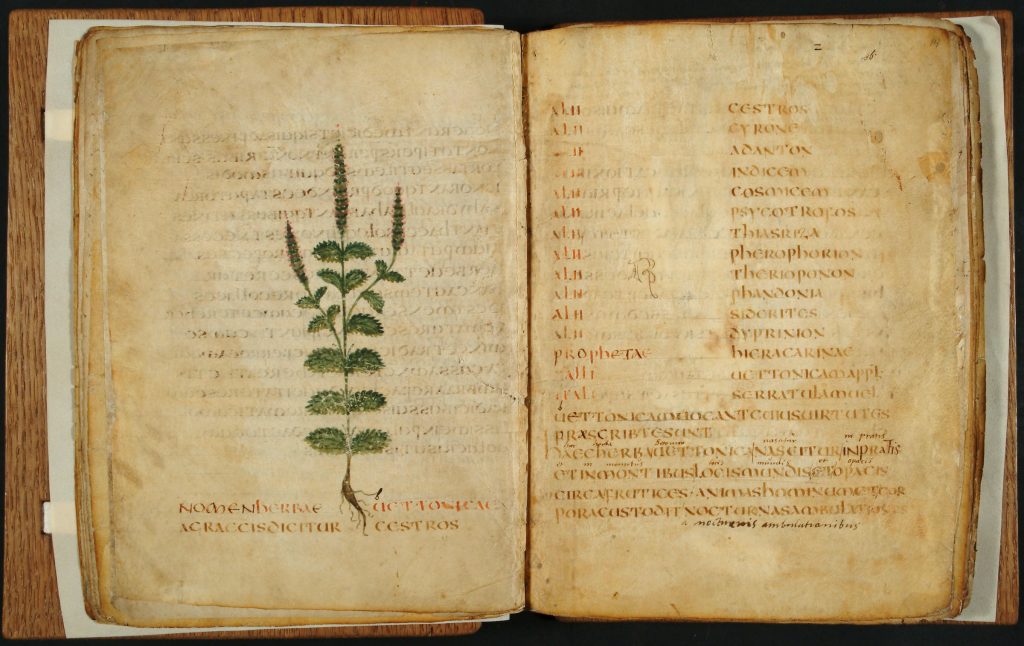 NOMEN HERBAE UETTONICAE
A GRAECIS DICITUR CESTROS
ALII CESTROS
ALII
ALII ADANTON
INDICEM
ALII COSMICEM
ALII PSYCOTROFOS
ALII THIASRIZA
ALII PHEROPHORION
ALII THERIOPONON
ALII PHANDONIA
ALII SIDERITES
ALII DYPRINION
PROPHETAE HIERACARINAE
GALLI UETTONICAM APPL
ITALI SERRATULAM UEL
UETTONICAM UOCANT CUIUS UIRTUTES
PRAESCRIBTE SUNT
nascitur in pratis
HAEC HERBA UETTONICA NASCITUR IN PRATIS
et in locis mundis et opacis
ET IN MONTIBUS LOCIS MUNDIS ET OPACIS
CIRCA FRUTICES ANIMAS HOMINUM ET COR
PORA CUSTODIT NOCTURNAS AMBULATIONES
a nocturnis ambulationibus